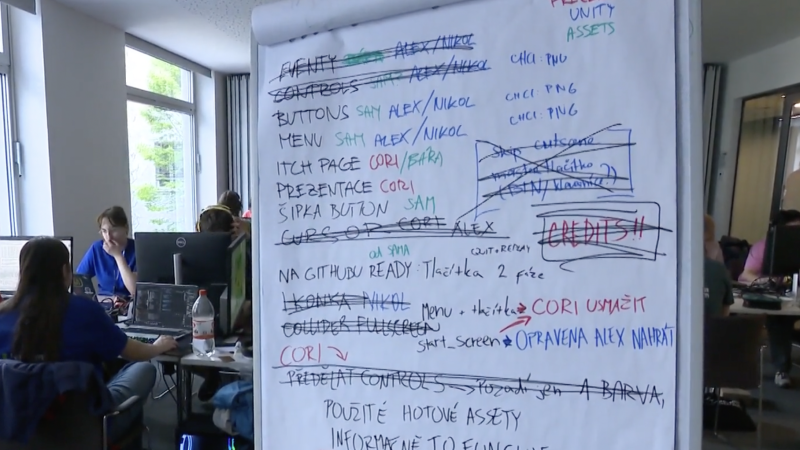 UNITY
ASSETS
EVENTY ALEX/NIKOL
CONTROLS SAM ALEX/NIKOL CHCI: PNG
BUTTONS SAM ALEX/NIKOL CHCI: PNG
MENU SAM ALEX/NIKOL CHCI: PNG
ITCH PAGE CORI/BÁRA
PREZENTACE CORI
ŠIPKA BUTTON SAM
Skip cutscene
tlačítko
CURSOR CORI ALEX
CREDITS!!
od SAMA
QUIT + REPLAY
NA GITHUBU READY: Tlačítka 2 fáze
IKONKA NIKOL
Menu + tlačítka CORI USMAŽIT
COLLIDER FULLSCREEN
start_screen OPRAVENA ALEX NAHRÁT
CORI
PŘEDĚLAT CONTROLS Pozadí jen 1 BARVA,
POUŽITÉ HOTOVÉ ASSETY
TO
DELL